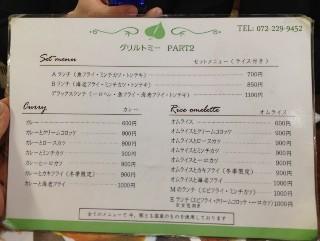 TEL: 072-229-9452
グリルトミー PART2
Set menu セットメニュー(ライス付き)
Aランチ(魚フライ・ミンチカツ・トンテキ) 700円
Bランチ(海老フライ・ミンチカツ・トンテキ) 850円
デラックスランチ(一口ヘレ・魚フライ・海老フライ・トンテキ) 1100円
Curry カレー
カレー 600円
カレーとクリームコロッケ 900円
カレーとロースカツ 900円
カレーとミンチカツ 900円
カレーと一口カツ 900円
カレーとカキフライ(冬季限定) 900円
カレーと海老フライ 1000円
Rice omelette オムライス
オムライス 600円
オムライスとクリームコロッケ 900円
オムライスとロースカツ 900円
オムライスとミンチカツ 900円
オムライスと一口カツ 900円
オムライスとカキフライ(冬季限定) 900円
オムライスと海老フライ 1000円
Mランチ(エビフライ・ミンチカツ) 1000円
Eランチ(エビフライ・クリームコロッケ・一口カツ) 1000円
全てのメニューで牛、豚とも国産のものを使用しております